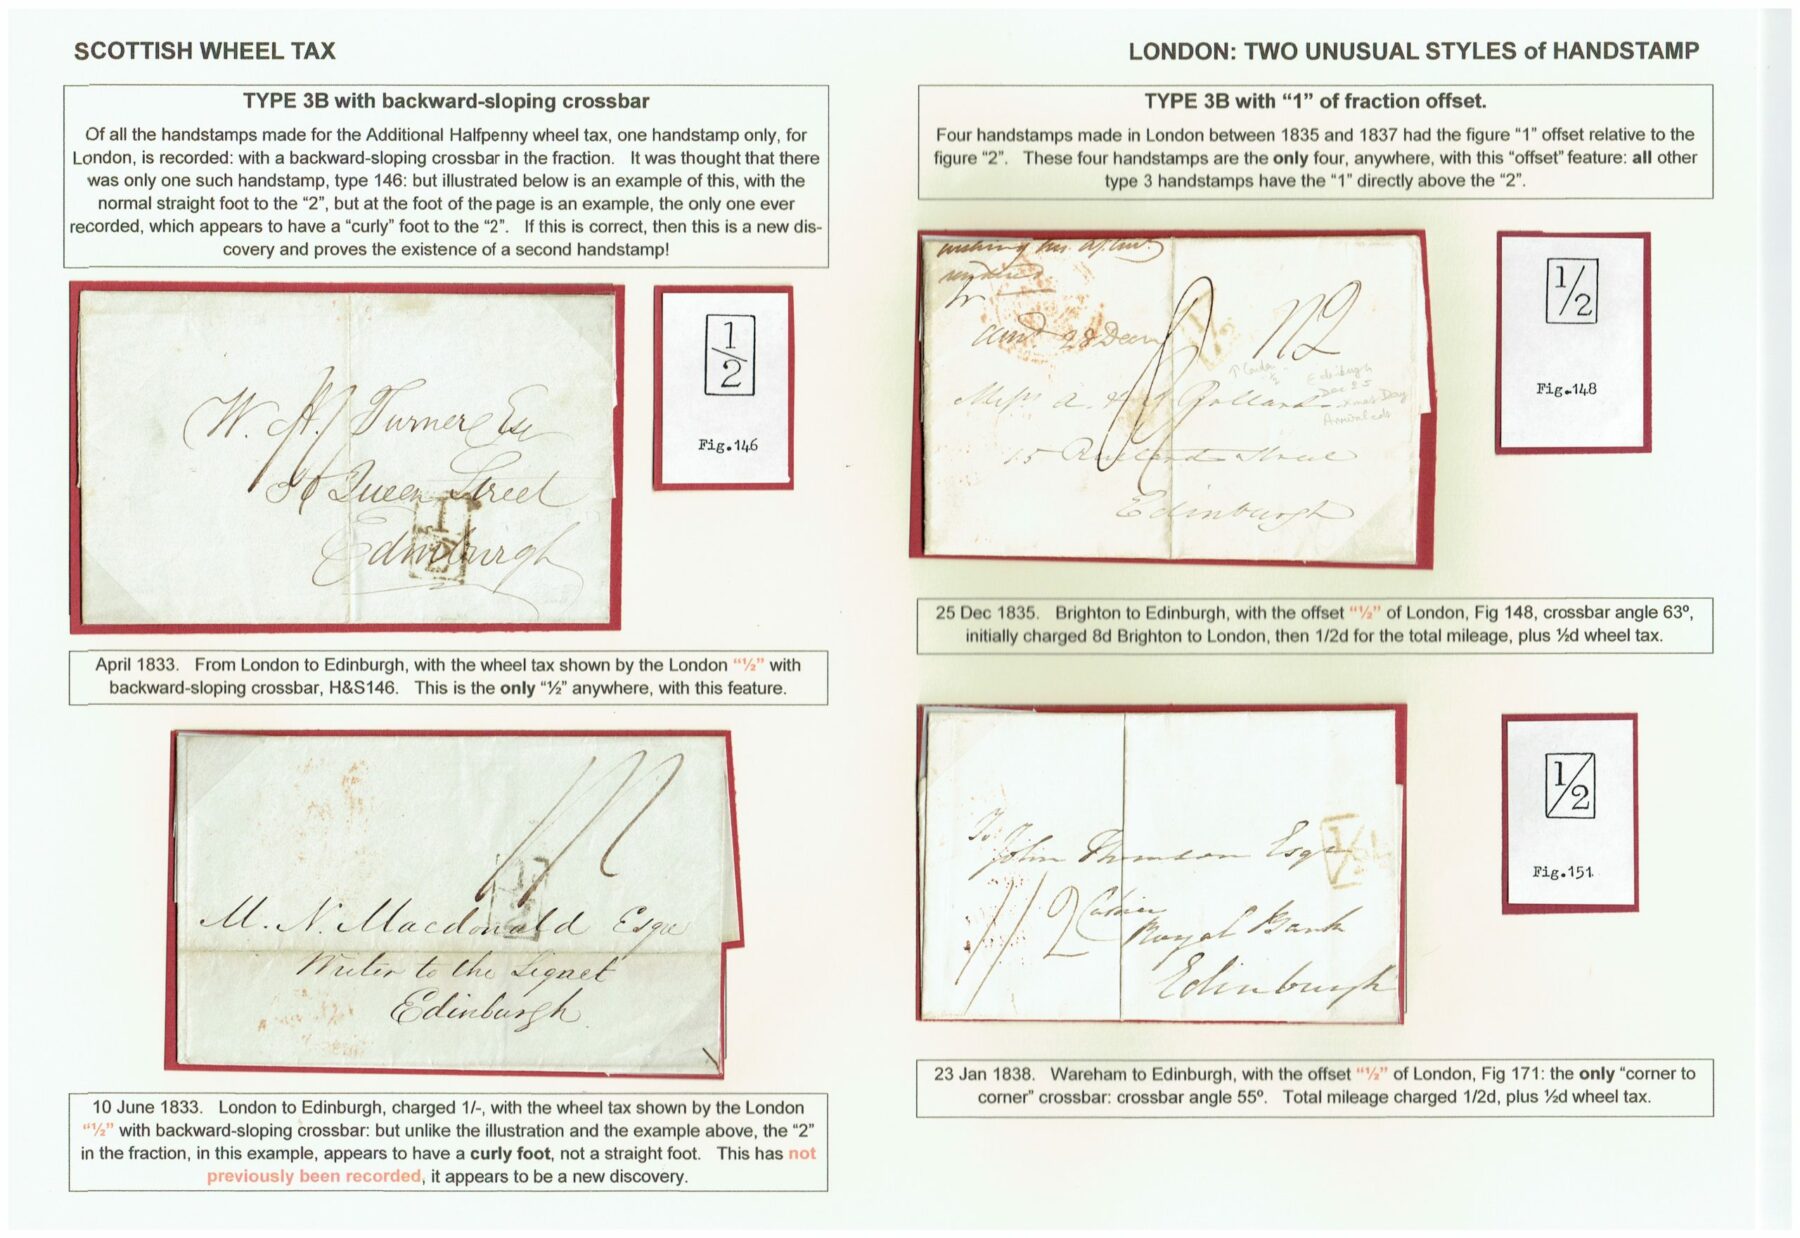 SCOTTISH WHEEL TAX
TYPE 3B with backward-sloping crossbar
Of all the handstamps made for the Additional Halfpenny wheel tax, one handstamp only, for
London, is recorded: with a backward-sloping crossbar in the fraction. It was thought that there
was only one such handstamp, type 146: but illustrated below is an example of this, with the
normal straight foot to the “2”, but at the foot of the page is an example, the only one ever
recorded, which appears to have a “curly” foot to the “2”. If this is correct, then this is a new dis-
covery and proves the existence of a second handstamp!
W. H. Turner Esq
36 Queen Street
Edinburgh
1
2
1
2
Fig.146
April 1833. From London to Edinburgh, with the wheel tax shown by the London “½” with
backward-sloping crossbar, H&S146. This is the only “½” anywhere, with this feature.
M. N. Macdonald Esqre
Writer to the Signet
Edinburgh
1
2
10 June 1833. London to Edinburgh, charged 1/-, with the wheel tax shown by the London
“½” with backward-sloping crossbar: but unlike the illustration and the example above, the “2”
in the fraction, in this example, appears to have a curly foot, not a straight foot. This has not
previously been recorded, it appears to be a new discovery.
LONDON: TWO UNUSUAL STYLES of HANDSTAMP
TYPE 3B with “1” of fraction offset.
Four handstamps made in London between 1835 and 1837 had the figure “1” offset relative to the
figure “2”. These four handstamps are the only four, anywhere, with this “offset” feature: all other
type 3 handstamps have the “1” directly above the “2”.
28 Decr
8
1/2
↑ London
½
Edinburgh
Dec 25
Xmas Day
Arrival cds
Miss A.
15 Street
Edinburgh
1/2
Fig.148
25 Dec 1835. Brighton to Edinburgh, with the offset “½” of London, Fig 148, crossbar angle 63º,
initially charged 8d Brighton to London, then 1/2d for the total mileage, plus ½d wheel tax.
To
John Thomson Esqr
Royal Bank
Edinburgh
1/2
1/2
1/2
Fig.151
23 Jan 1838. Wareham to Edinburgh, with the offset “½” of London, Fig 171: the only “corner to
corner” crossbar: crossbar angle 55º. Total mileage charged 1/2d, plus ½d wheel tax.